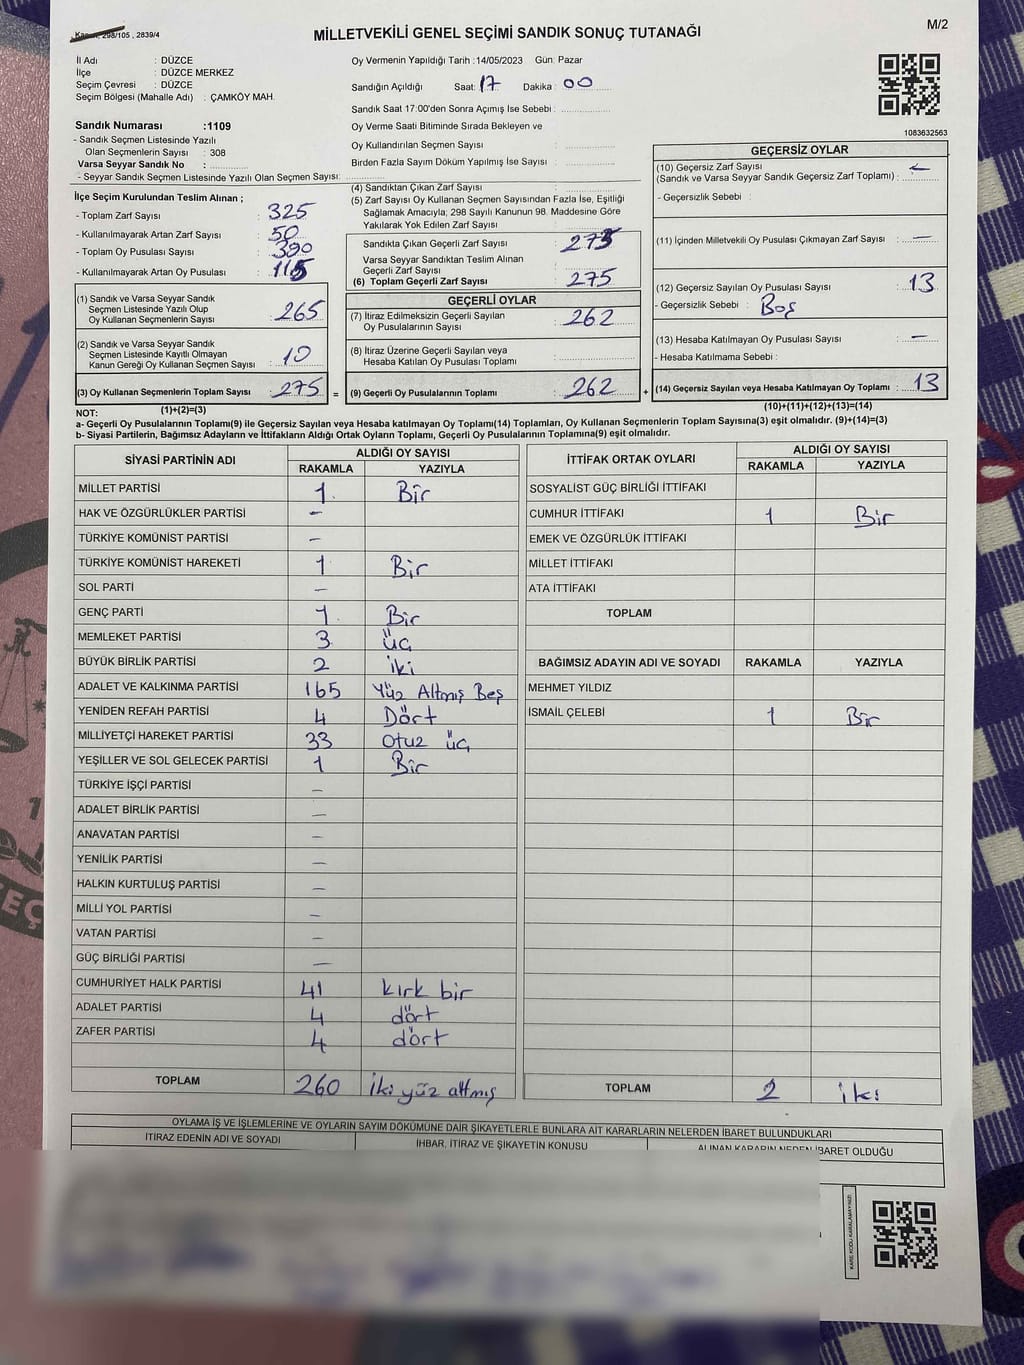 298/105 , 2839/4
MİLLETVEKİLİ GENEL SEÇİMİ SANDIK SONUÇ TUTANAĞI
M/2
İl Adı : DÜZCE
İlçe : DÜZCE MERKEZ
Seçim Çevresi : DÜZCE
Seçim Bölgesi (Mahalle Adı) : ÇAMKÖY MAH.
Sandık Numarası :1109
- Sandık Seçmen Listesinde Yazılı
Olan Seçmenlerin Sayısı : 308
Varsa Seyyar Sandık No :
- Seyyar Sandık Seçmen Listesinde Yazılı Olan Seçmen Sayısı:
Oy Vermenin Yapıldığı Tarih : 14/05/2023 Gün: Pazar
Sandığın Açıldığı Saat: 17 Dakika : 00
Sandık Saat 17:00'den Sonra Açılmış İse Sebebi :
Oy Verme Saati Bitiminde Sırada Bekleyen ve
Oy Kullandırılan Seçmen Sayısı :
Birden Fazla Sayım Döküm Yapılmış İse Sayısı :
1083632563
İlçe Seçim Kurulundan Teslim Alınan ;
- Toplam Zarf Sayısı : 325
- Kullanılmayarak Artan Zarf Sayısı : 50
- Toplam Oy Pusulası Sayısı : 390
- Kullanılmayarak Artan Oy Pusulası : 115
(1) Sandık ve Varsa Seyyar Sandık
Seçmen Listesinde Yazılı Olup
Oy Kullanan Seçmenlerin Sayısı : 265
(2) Sandık ve Varsa Seyyar Sandık
Seçmen Listesinde Kayıtlı Olmayan
Kanun Gereği Oy Kullanan Seçmen Sayısı : 10
(3) Oy Kullanan Seçmenlerin Toplam Sayısı : 275 =
(1)+(2)=(3)
(4) Sandıktan Çıkan Zarf Sayısı :
(5) Zarf Sayısı Oy Kullanan Seçmen Sayısından Fazla İse, Eşitliği
Sağlamak Amacıyla, 298 Sayılı Kanunun 98. Maddesine Göre
Yakılarak Yok Edilen Zarf Sayısı :
Sandıkta Çıkan Geçerli Zarf Sayısı : 275
Varsa Seyyar Sandıktan Teslim Alınan
Geçerli Zarf Sayısı :
(6) Toplam Geçerli Zarf Sayısı : 275
GEÇERLİ OYLAR
(7) İtiraz Edilmeksizin Geçerli Sayılan
Oy Pusulalarının Sayısı : 262
(8) İtiraz Üzerine Geçerli Sayılan veya
Hesaba Katılan Oy Pusulası Toplamı :
(9) Geçerli Oy Pusulalarının Toplamı : 262 +
GEÇERSİZ OYLAR
(10) Geçersiz Zarf Sayısı
(Sandık ve Varsa Seyyar Sandık Geçersiz Zarf Toplamı) : -
- Geçersizlik Sebebi :
(11) İçinden Milletvekili Oy Pusulası Çıkmayan Zarf Sayısı : -
(12) Geçersiz Sayılan Oy Pusulası Sayısı : 13
- Geçersizlik Sebebi : Boş
(13) Hesaba Katılmayan Oy Pusulası Sayısı : -
- Hesaba Katılmama Sebebi :
(14) Geçersiz Sayılan veya Hesaba Katılmayan Oy Toplamı : 13
(10)+(11)+(12)+(13)=(14)
NOT:
a- Geçerli Oy Pusulaları Toplamı(9) ile Geçersiz Sayılan veya Hesaba katılmayan Oy Toplamı(14) Toplamları, Oy Kullanan Seçmenlerin Toplam Sayısına(3) eşit olmalıdır. (9)+(14)=(3)
b- Siyasi Partilerin, Bağımsız Adayların ve İttifakların Aldığı Ortak Oyların Toplamı, Geçerli Oy Pusulalarının Toplamına(9) eşit olmalıdır.
SİYASİ PARTİNİN ADI ALDIĞI OY SAYISI
RAKAMLA YAZIYLA
MİLLET PARTİSİ 1 Bir
HAK VE ÖZGÜRLÜKLER PARTİSİ -
TÜRKİYE KOMÜNİST PARTİSİ -
TÜRKİYE KOMÜNİST HAREKETİ 1 Bir
SOL PARTİ -
GENÇ PARTİ 1 Bir
MEMLEKET PARTİSİ 3 üç
BÜYÜK BİRLİK PARTİSİ 2 iki
ADALET VE KALKINMA PARTİSİ 165 Yüz Altmış Beş
YENİDEN REFAH PARTİSİ 4 Dört
MİLLİYETÇİ HAREKET PARTİSİ 33 Otuz üç
YEŞİLLER VE SOL GELECEK PARTİSİ 1 Bir
TÜRKİYE İŞÇİ PARTİSİ -
ADALET BİRLİK PARTİSİ -
ANAVATAN PARTİSİ -
YENİLİK PARTİSİ -
HALKIN KURTULUŞ PARTİSİ -
MİLLİ YOL PARTİSİ -
VATAN PARTİSİ -
GÜÇ BİRLİĞİ PARTİSİ -
CUMHURİYET HALK PARTİSİ 41 kırk bir
ADALET PARTİSİ 4 dört
ZAFER PARTİSİ 4 dört
TOPLAM 260 İki yüz altmış
İTTİFAK ORTAK OYLARI ALDIĞI OY SAYISI
RAKAMLA YAZIYLA
SOSYALİST GÜÇ BİRLİĞİ İTTİFAKI
CUMHUR İTTİFAKI 1 Bir
EMEK VE ÖZGÜRLÜK İTTİFAKI
MİLLET İTTİFAKI
ATA İTTİFAKI
TOPLAM
BAĞIMSIZ ADAYIN ADI VE SOYADI RAKAMLA YAZIYLA
MEHMET YILDIZ
İSMAİL ÇELEBİ 1 Bir
TOPLAM 2 iki
OYLAMA İŞ VE İŞLEMLERİNE VE OYLARIN SAYIM DÖKÜMÜNE DAİR ŞİKAYETLERLE BUNLARA AİT KARARLARIN NELERDEN İBARET BULUNDUKLARI
İTİRAZ EDENİN ADI VE SOYADI İHBAR, İTİRAZ VE ŞİKAYETİN KONUSU ALINAN KARARIN NEDEN İBARET OLDUĞU
KARE KODU KARALAMAYINIZ!